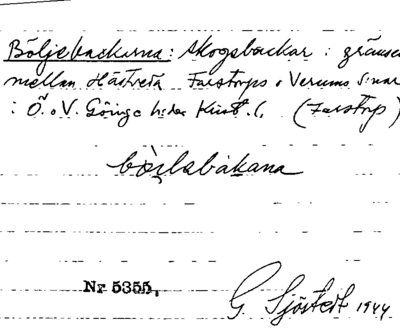 Böljebackarna: skogsbackar i gränsen
mellan Hästveda Farstorps o Verums s:nar
i Ö. o V. Göinge h:der Krist. l. (Farstorp)
Nr 5355.
G. Sjöstedt 1944